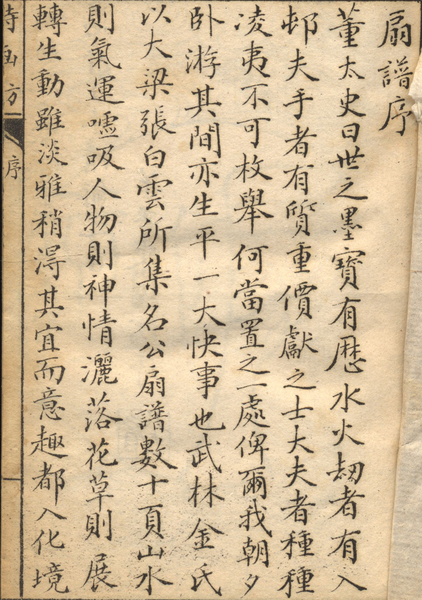 扇譜序
董太史曰世之墨寶有歷水火刼者有入
邨夫手者有質重價獻之士大夫者種種
凌夷不可枚舉何當置之一處俾爾我朝夕
卧游其間亦生平一大快事也武林金氏
以大梁張白雲所集名公扇譜數十頁山水
則氣運噓吸人物則神情灑落花草則展
轉生動雖淡雅稍淂其宜而意趣都入化境
序